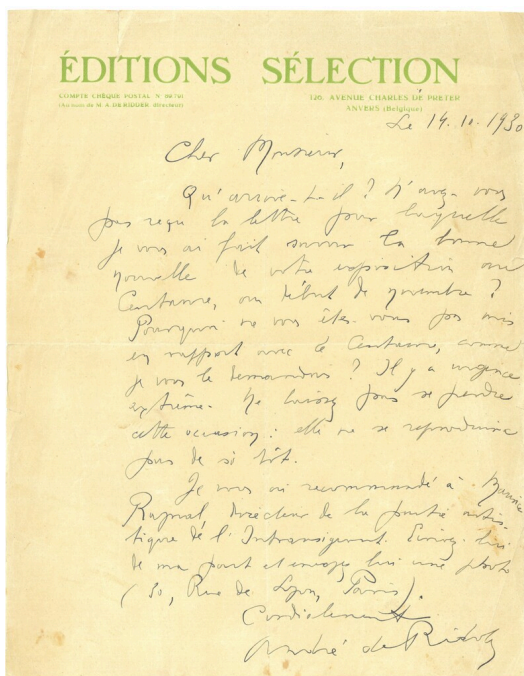 ÉDITIONS SÉLECTION
COMPTE CHÈQUE POSTAL N°
(Au nom de M. A. DE RIDDER directeur)
126, AVENUE CHARLES DE PRETER
ANVERS (Belgique)
Le 14.10.1930
Cher Monsieur,
Qu'arrive-t-il ? N'avez-vous
pas reçu la lettre par laquelle
je vous ai fait savoir la bonne
nouvelle de votre exposition au
Centaure, au début de novembre ?
Pourquoi ne vous êtes-vous pas mis
en rapport avec le Centaure, comme
je vous le demandais ? Il y a urgence
extrême. Ne laissez pas se perdre
cette occasion : elle ne se reproduira
pas de si tôt.
Je vous ai recommandé à Maurice
Raynal, directeur de la partie artis-
tique de l'Intransigeant. Écrivez-lui
de ma part et envoyez lui une photo
(30, Rue de Lyon, Paris).
Cordialement
André de Ridder